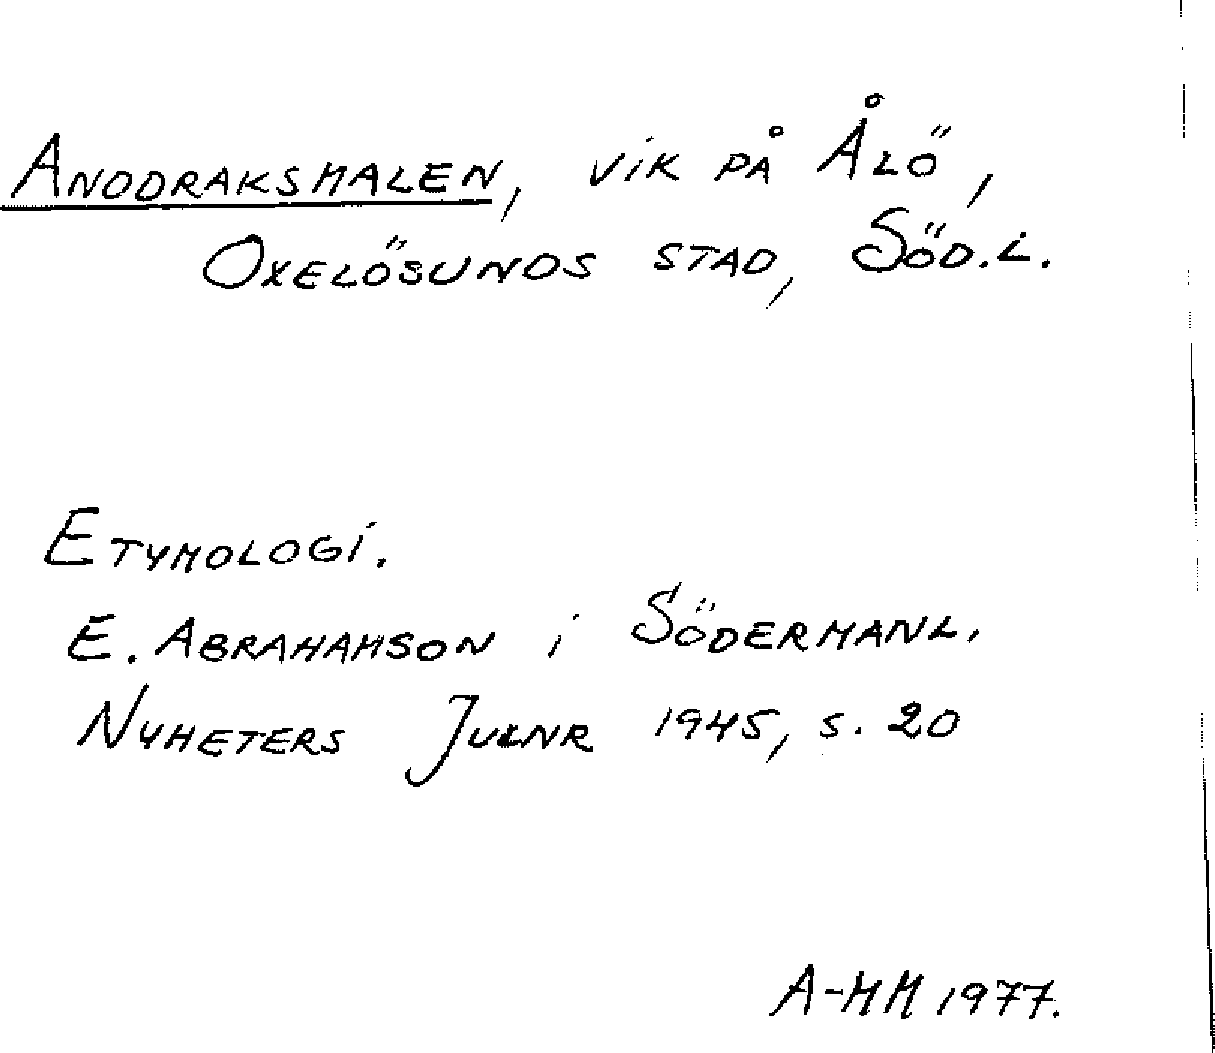 ANDDRAKSMALEN, VIK PÅ ÅLÖ,
OXELÖSUNDS STAD, SÖD.L.
ETYMOLOGI.
E. ABRAHAMSON i SÖDERMANL.
NYHETERS JULNR 1945, S. 20
A-MM 1977.